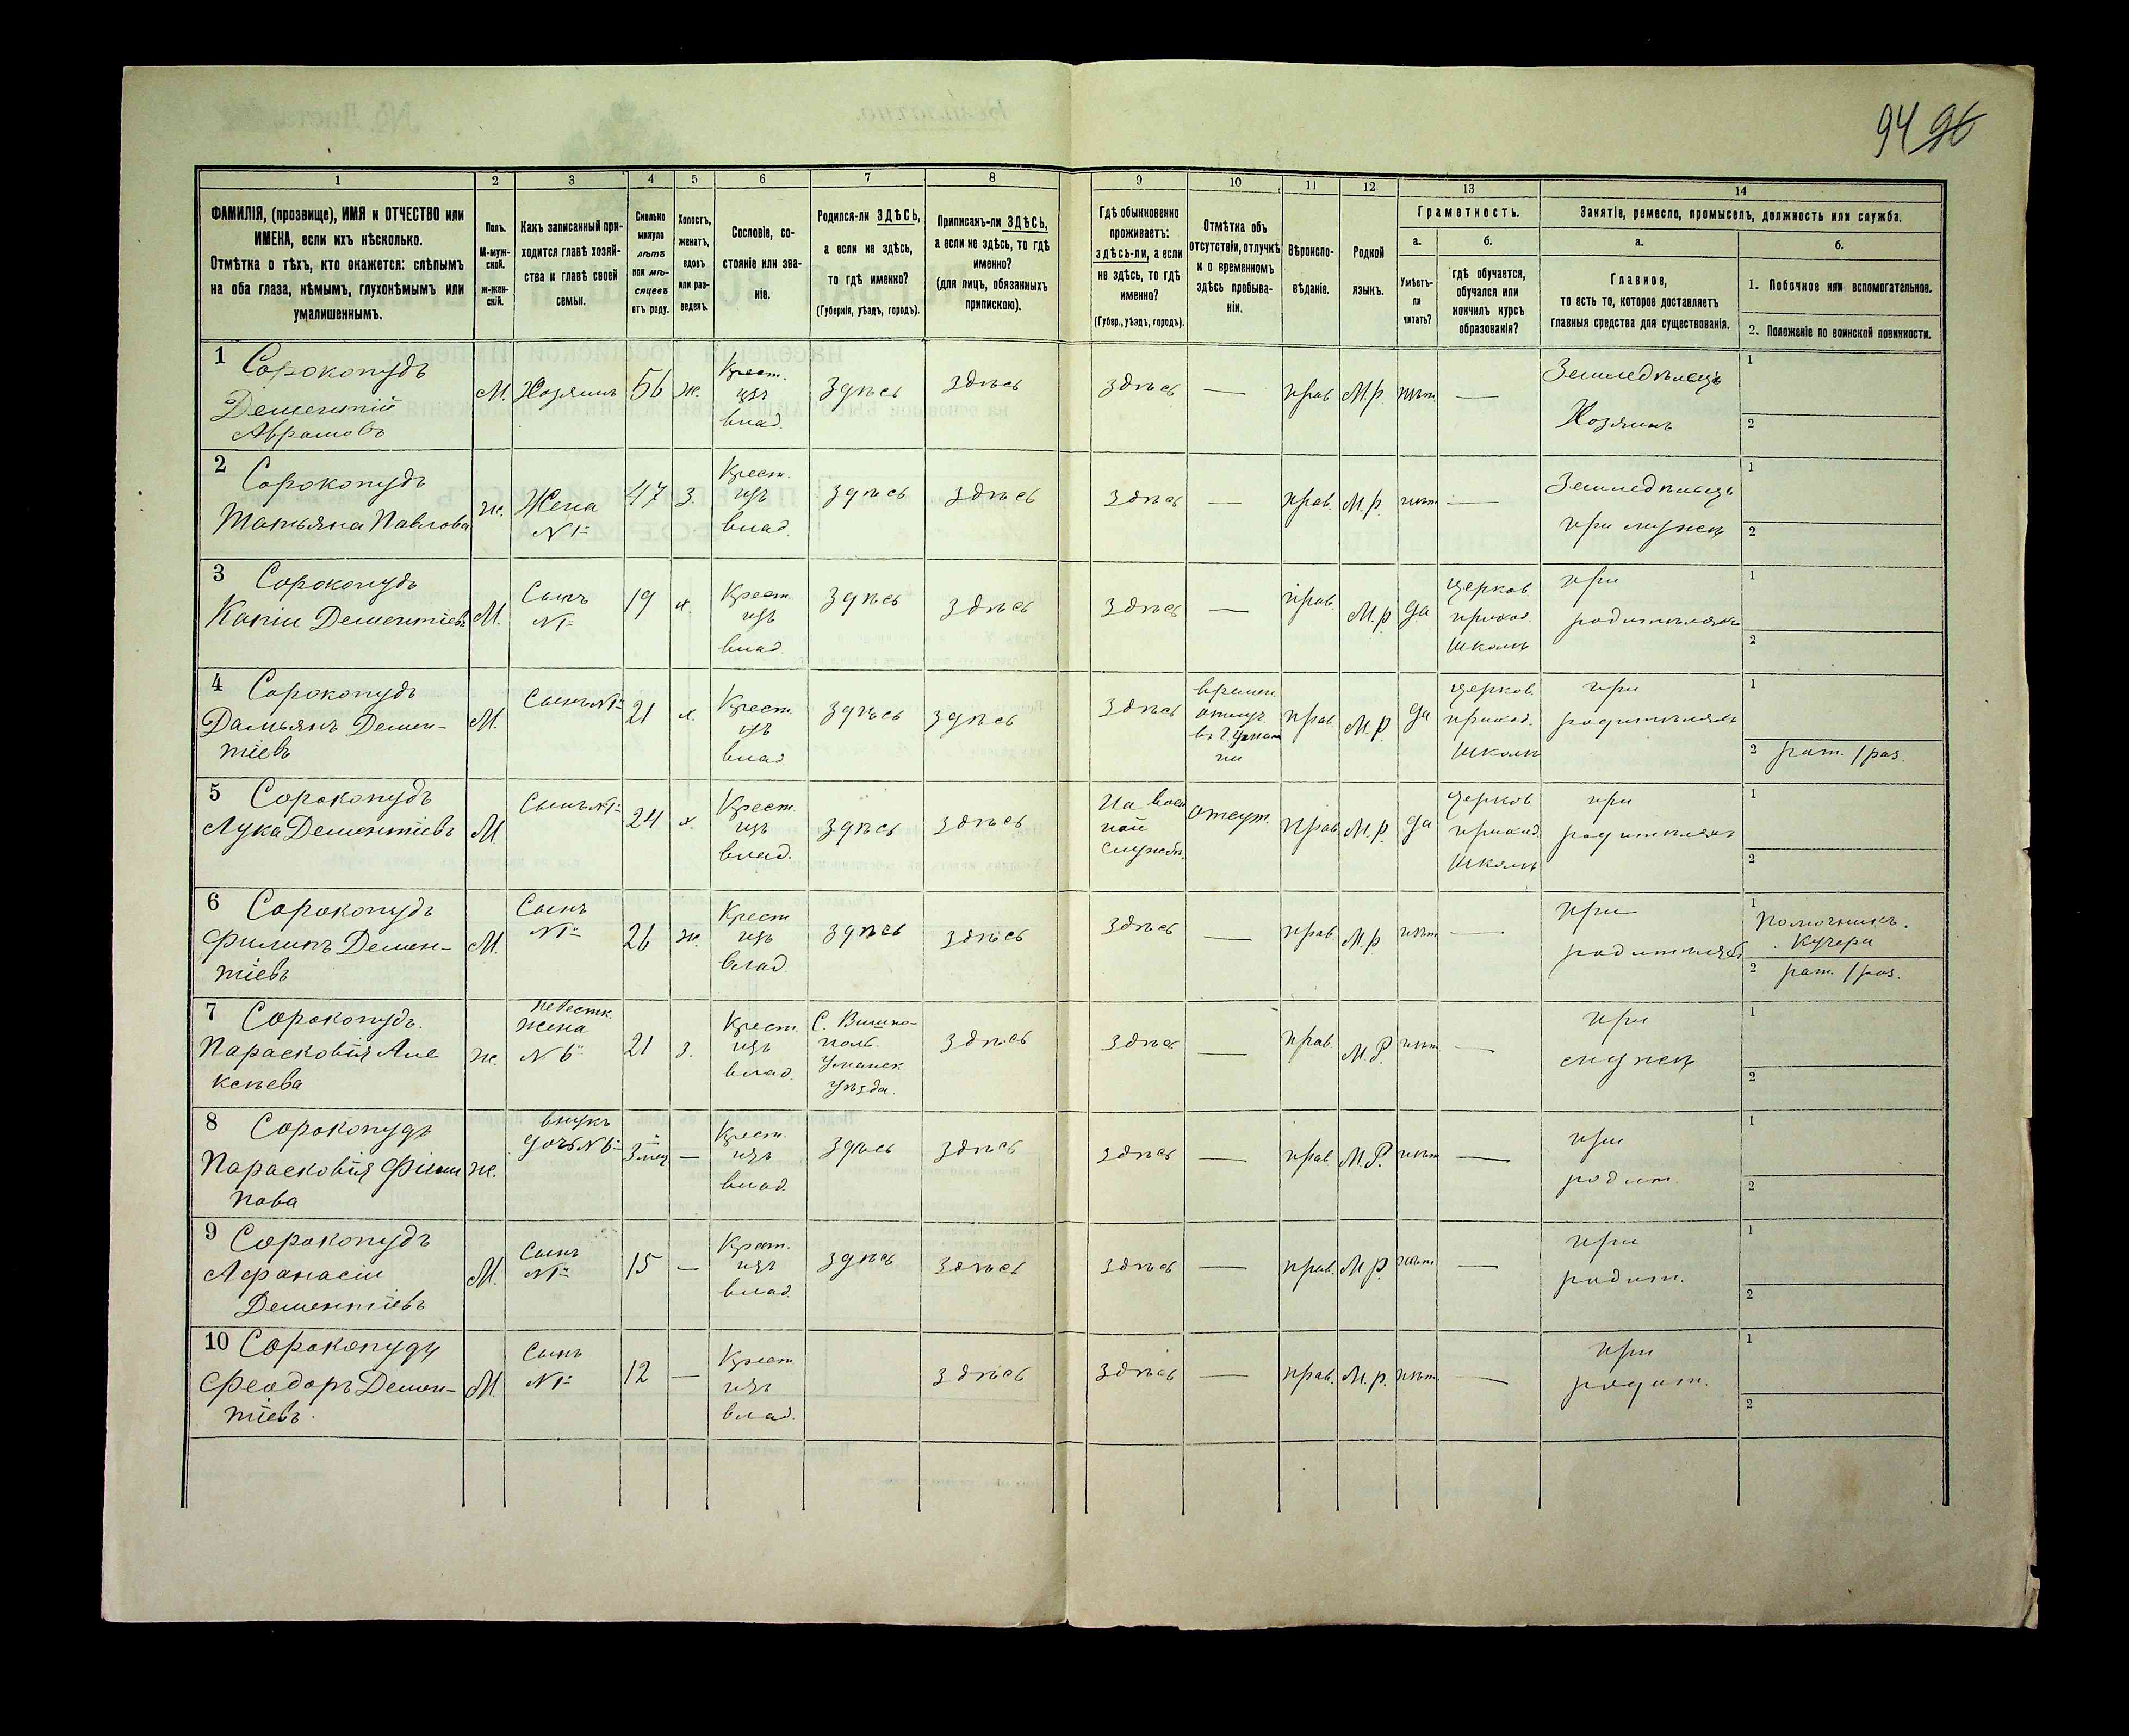 94 96
1 2 3 4 5 6 7 8 9 10 11 12 13 14
ФАМИЛІЯ, (прозвище), ИМЯ и ОТЧЕСТВО или
ИМЕНА, если ихъ нѣсколько.
Отмѣтка о тѣхъ, кто окажется: слѣпымъ
на оба глаза, нѣмымъ, глухонѣмымъ или
умалишеннымъ.
Полъ.
М-муж-
ской.
ж-жен-
скій.
Какъ записанный при-
ходится главѣ хозяй-
ства и главѣ своей
семьи.
Сколько
минуло
лѣтъ
или мѣ-
сяцевъ
отъ роду.
Холостъ,
женатъ,
вдовъ
или раз-
веденъ.
Сословіе, со-
стояніе или зва-
ніе.
Родился-ли ЗДѢСЬ,
а если не здѣсь,
то гдѣ именно?
(Губернія, уѣздъ, городъ).
Приписанъ-ли ЗДѢСЬ,
а если не здѣсь, то гдѣ
именно?
(для лицъ, обязанныхъ
припискою).
Гдѣ обыкновенно
проживаетъ:
здѣсь-ли, а если
не здѣсь, то гдѣ
именно?
(Губер., уѣздъ, городъ).
Отмѣтка объ
отсутствіи, отлучкѣ
и о временномъ
здѣсь пребыва-
ніи.
Вѣроиспо-
вѣданіе.
Родной
языкъ.
Грамотность.
а.
Умѣетъ-
ли
читать?
б.
гдѣ обучается,
обучался или
кончилъ курсъ
образованія?
Занятіе, ремесло, промыселъ, должность или служба.
а.
Главное,
то есть то, которое доставляетъ
главныя средства для существованія.
б.
1. Побочное или вспомогательное.
2. Положеніе по воинской повинности.
1 Сорокопудъ
Дементій
Аврамовъ
М. Хозяинъ 56 ж.
Крест.
изъ
влад.
Здѣсь здѣсь здѣсь — прав М.р. нѣтъ —
Земледѣлецъ
Хозяинъ
1
2
2 Сорокопудъ
Татьяна Павлова
ж. Жена
№ 1
47 з.
Крест.
изъ
влад.
здѣсь здѣсь здѣсь — прав. М.р. нѣт —
Земледѣлецъ
при мужеѣ
1
2
3 Сорокопудъ
Дементіевъ
М. Сынъ
№ 1
19 х.
Крест.
изъ
влад.
здѣсь здѣсь здѣсь — прав. М.р да
церков.
приход.
школѣ
при
родителяхъ
1
2
4 Сорокопудъ
Дамьянъ Демен-
тіевъ
М. Сынъ № 1 21 х.
Крест.
изъ
влад
здѣсь здѣсь здѣсь
времен.
отлуч.
прав. М.р. да
церков.
приход.
школѣ
при
родителяхъ
1
2 рат. 1 раз.
5 Сорокопудъ
Лука Дементіевъ
М. Сынъ № 1 24 х.
Крест.
изъ
влад.
здѣсь здѣсь
На воен
ной
службѣ.
отсут. прав. М.р да
церков
приход.
школѣ
при
родителяхъ
1
2
6 Сорокопудъ
Филипъ Демен-
тіевъ
М. Сынъ
№ 1
26 ж.
Крест
изъ
влад.
здѣсь здѣсь здѣсь — прав. М.р нѣт —
при
родителяхъ
1 Помочникъ.
Кучера
2 рат. 1 раз.
7 Сорокопудъ.
Парасковія Але
ксѣева
ж. невестк.
жена
№ 6
21 з.
Крест.
изъ
влад.
С. Вишно-
поль
Уманск
уѣзда.
здѣсь здѣсь — прав. М.Р. нѣт —
при
мужеѣ
1
2
8 Сорокопудъ
Парасковія Фили
пова
ж. внукъ
дочь № 6
3 мец —
Крест.
изъ
влад.
здѣсь здѣсь здѣсь — прав М.Р. нѣт —
при
родит.
1
2
9 Сорокопудъ
Афанасіи
Дементіевъ
М. Сынъ
№ 1
15 —
Крест.
изъ
влад.
здѣсь здѣсь здѣсь — прав. М.р. нѣт —
при
родит.
1
2
10 Сорокопудъ
Феодоръ Демен-
тіевъ.
М. Сынъ
№ 1
12 —
Крест
изъ
влад.
здѣсь здѣсь — прав. М.р. нѣт —
при
родит.
1
2